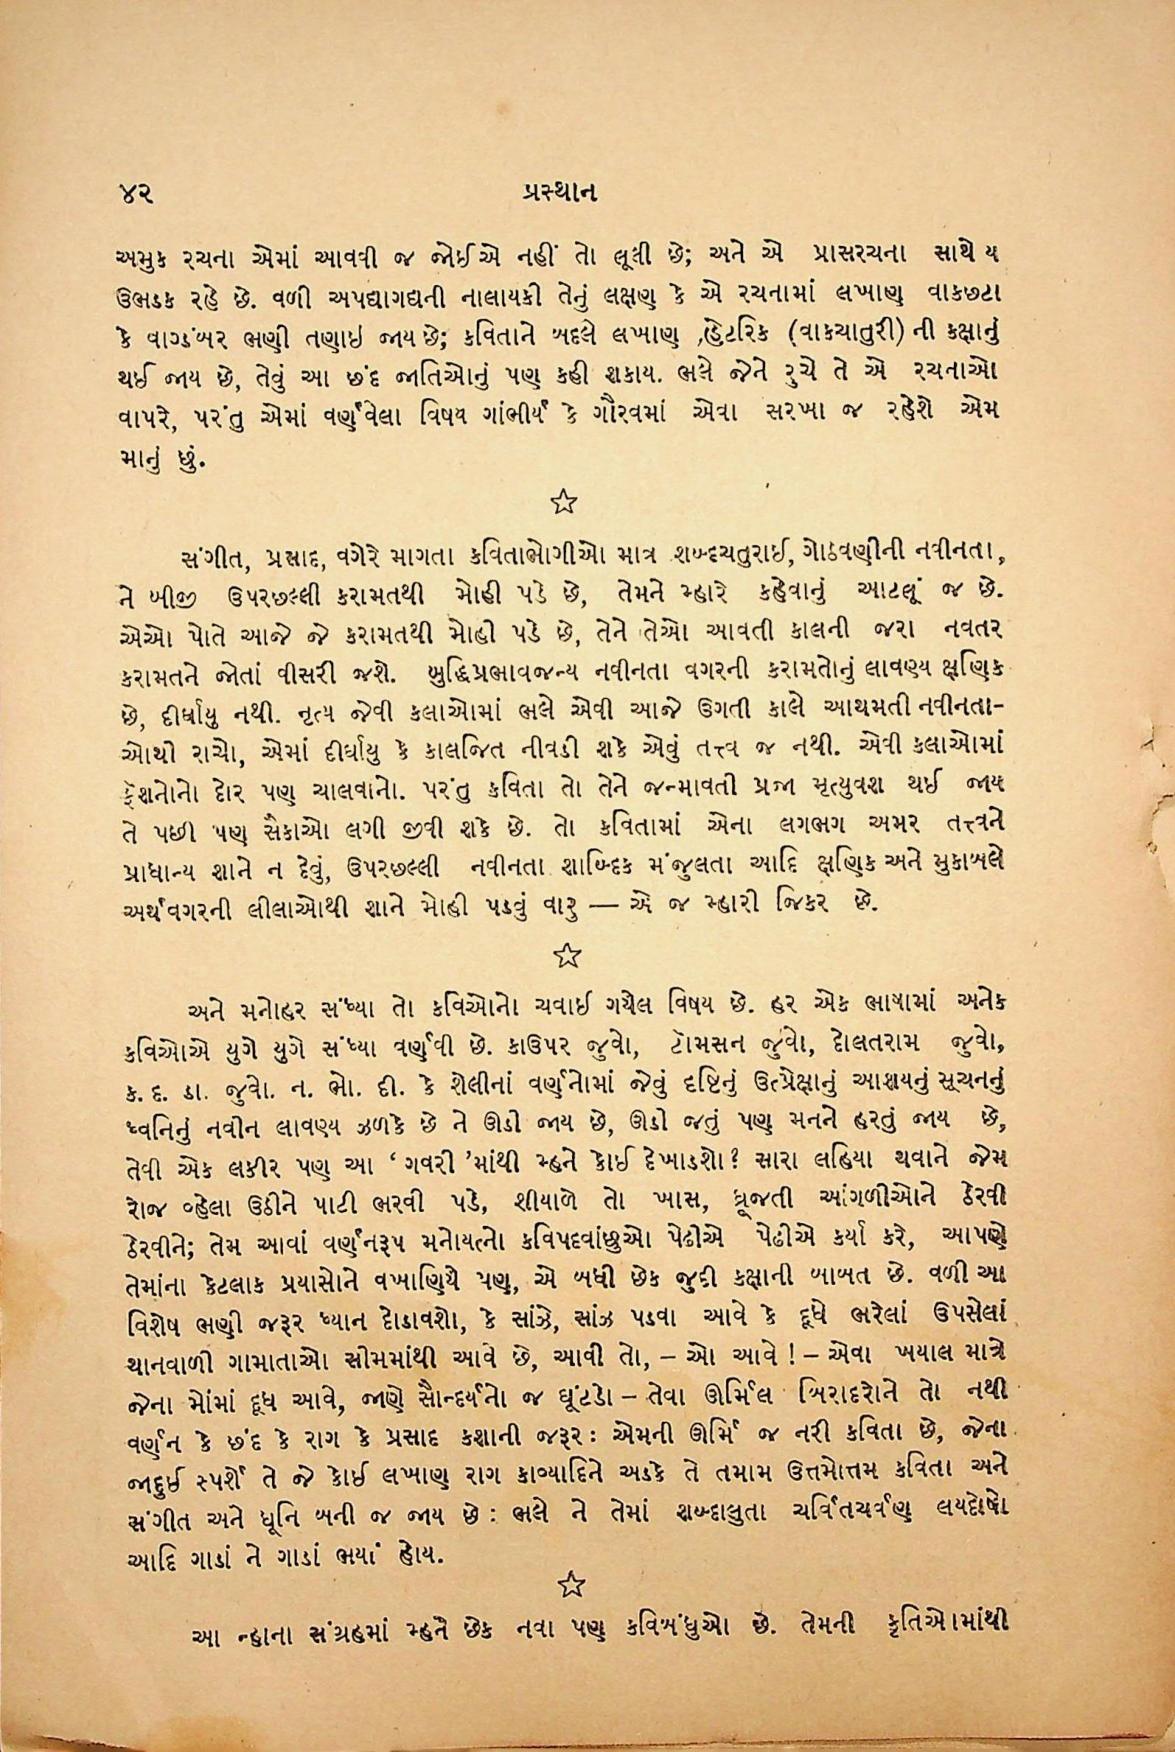 ૪૨ પ્રસ્થાન
અમુક રચના એમાં આવવી જ જોઈએ નહીં તો લૂલી છે; અને એ પ્રાસરચના સાથે ય
ઉભડક રહે છે. વળી અપદ્યાગદ્યની નાલાયકી તેનું લક્ષણ કે એ રચનામાં લખાણ વાકછટા
કે વાગ્ડંબર ભણી તણાઇ જાય છે; કવિતાને બદલે લખાણ ર્‌હેટરિક (વાકચાતુરી) ની કક્ષાનું
થઈ જાય છે, તેવું આ છંદ જાતિઓનું પણ કહી શકાય. ભલે જેને રુચે તે એ રચનાઓ
વાપરે, પરંતુ એમાં વર્ણવેલા વિષય ગાંભીર્ય કે ગૌરવમાં એવા સરખા જ રહેશે એમ
માનું છું.
☆
સંગીત, પ્રસાદ, વગેરે માગતા કવિતાભોગીઓ માત્ર શબ્દચતુરાઈ, ગોઠવણીની નવીનતા,
ને બીજી ઉપરછલ્લી કરામતથી મોહી પડે છે, તેમને મ્હારે કહેવાનું આટલૂં જ છે.
એઓ પોતે આજે જે કરામતથી મોહી પડે છે, તેને તેઓ આવતી કાલની જરા નવતર
કરામતને જોતાં વીસરી જશે. બુદ્ધિપ્રભાવજન્ય નવીનતા વગરની કરામતોનું લાવણ્ય ક્ષણિક
છે, દીર્ઘાયુ નથી. નૃત્ય જેવી કલાઓમાં ભલે એવી આજે ઉગતી કાલે આથમતી નવીનતા-
ઓથી રાચો, એમાં દીર્ઘાયુ કે કાલજિત નીવડી શકે એવું તત્ત્વ જ નથી. એવી કલાઓમાં
ફૅશનોનો દોર પણ ચાલવાનો. પરંતુ કવિતા તો તેને જન્માવતી પ્રજા મૃત્યુવશ થઈ જાય
તે પછી પણ સૈકાઓ લગી જીવી શકે છે. તો કવિતામાં એના લગભગ અમર તત્ત્વને
પ્રાધાન્ય શાને ન દેવું, ઉપરછલ્લી નવીનતા શાબ્દિક મંજુલતા આદિ ક્ષણિક અને મુકાબલે
અર્થવગરની લીલાઓથી શાને મોહી પડવું વારુ — એ જ મ્હારી જિકર છે.
☆
અને મનોહર સંધ્યા તો કવિઓનો ચવાઈ ગયૈલ વિષય છે. હર એક ભાષામાં અનેક
કવિઓએ યુગે યુગે સંધ્યા વર્ણવી છે. કાઉપર જુવો, ટૉમસન જુવો, દોલતરામ જુવો,
ક. દ. ડા. જુવો. ન. ભો. દી. કે શેલીનાં વર્ણનોમાં જેવું દૃષ્ટિનું ઉત્પ્રેક્ષાનું આશયનું સૂચનનું
ધ્વનિનું નવીન લાવણ્ય ઝળકે છે ને ઊડી જાય છે, ઊડી જતું પણ મનને હરતું જાય છે,
તેવી એક લકીર પણ આ ‘ ગવરી ’માંથી મ્હને કોઈ દેખાડશો? સારા લહિયા થવાને જેમ
રોજ વ્હેલા ઉઠીને પાટી ભરવી પડે, શીયાળે તો ખાસ, ધ્રૂજતી આંગળીઓને ઠેરવી
ઠેરવીને; તેમ આવાં વર્ણનરૂપ મનોયત્નો કવિપદવાંછુઓ પેઢીએ પેઢીએ કર્યા કરે, આપણે
તેમાંના કેટલાક પ્રયાસોને વખાણિયૈ પણ, એ બધી છેક જુદી કક્ષાની બાબત છે. વળી આ
વિશેષ ભણી જરૂર ધ્યાન દોડાવશો, કે સાંઝે, સાંઝ પડવા આવે કે દૂધે ભરેલાં ઉપસેલાં
થાનવાળી ગામાતાઓ સીમમાંથી આવે છે, આવી તો, – ઓ આવે ! – એવા ખયાલ માત્રે
જેના મોંમાં દૂધ આવે, જાણે સૌન્દર્યનો જ ઘૂંટડો – તેવા ઊર્મિલ બિરાદરોને તો નથી
વર્ણન કે છંદ કે રાગ કે પ્રસાદ કશાની જરૂર: એમની ઊર્મિ જ નરી કવિતા છે, જેના
જાદુઈ સ્પર્શે તે જે કોઈ લખાણ રાગ કાવ્યાદિને અડકે તે તમામ ઉત્તમોત્તમ કવિતા અને
સંગીત અને ધૂનિ બની જ જાય છે : ભલે ને તેમાં શબ્દાલુતા ચર્વિતચર્વણ લયદોષો
આદિ ગાડાં ને ગાડાં ભર્યાં હોય.
☆
આ ન્હાના સંગ્રહમાં મ્હનૈ છેક નવા પણ કવિબંધુઓ છે. તેમની કૃતિઓમાંથી